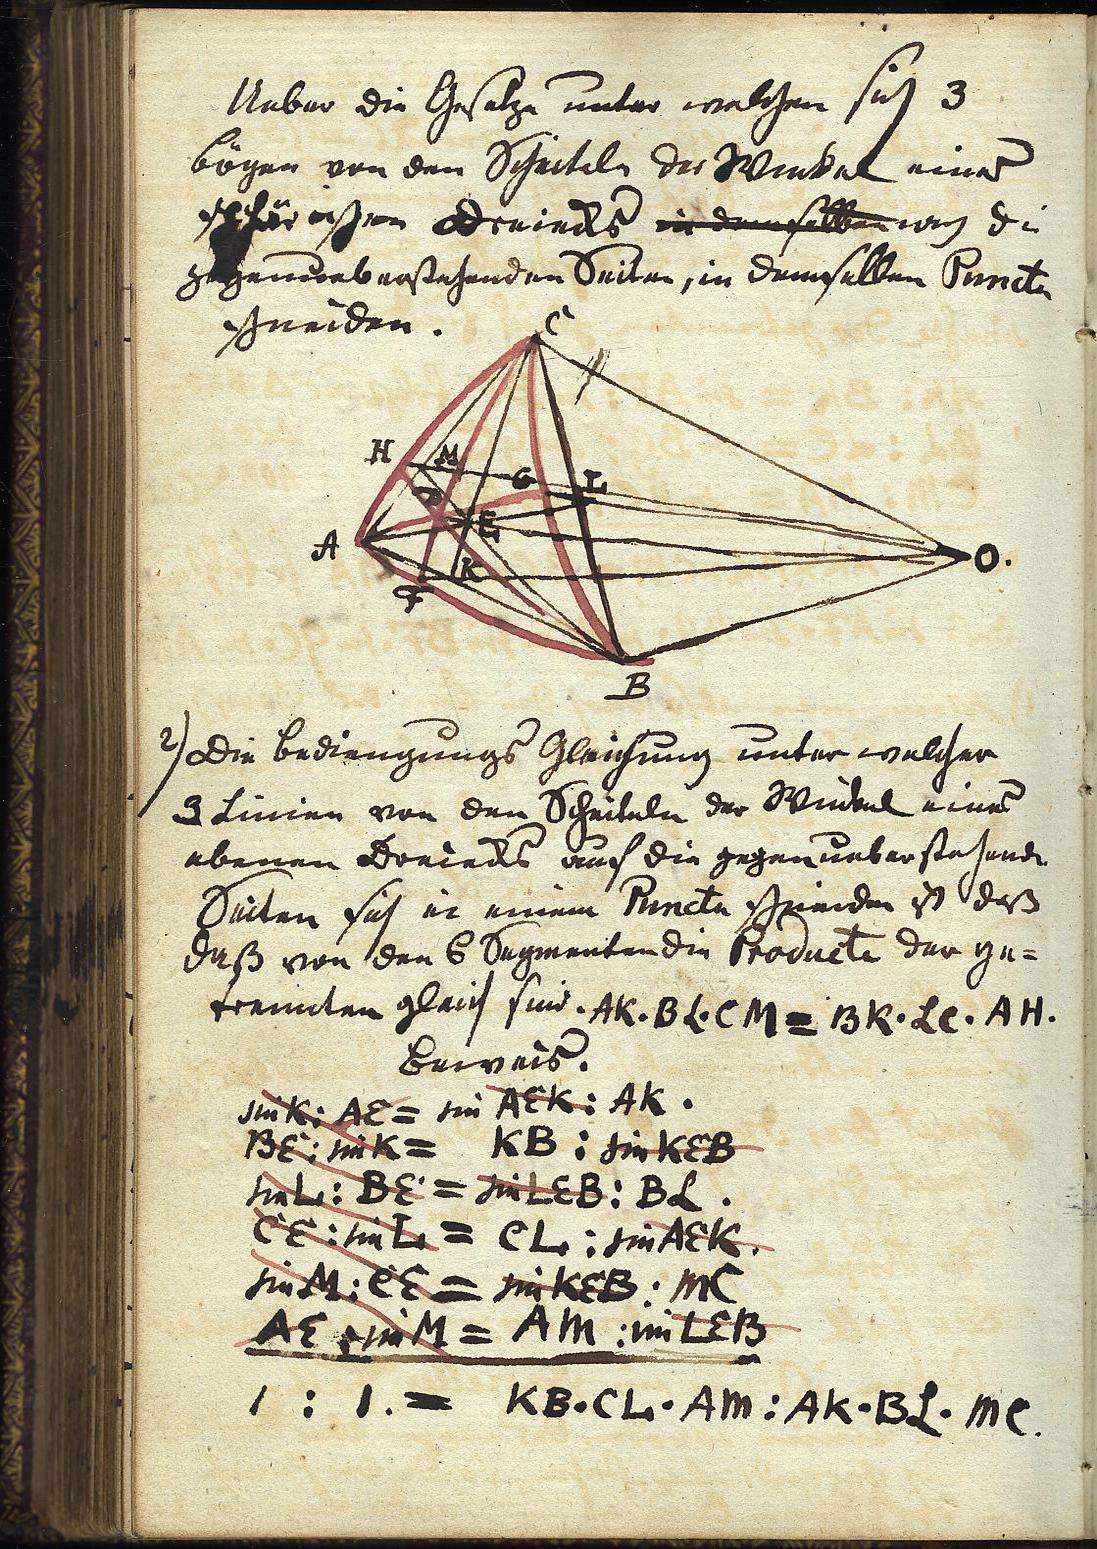 Ueber die Gesetze unter welchen sich 3
bögen von den Scheiteln der Winkel eines
sphärischen Dreiecks in demselben nach di
gegenueberstehenden Seiten, in demselben Puncte
schneiden.
C
H M G L
D E
A O.
F K
B
2) Die bedingungs Gleichung unter welcher
3 Linien von den Scheiteln der Winkel eines
ebenen Dreiecks auf die gegenueberstehende
Seiten sich in einem Puncte schneiden ist daß
daß von den 6 Segmenten die Producte der ge=
trennten gleich sind. AK.BL.CM = BK.LC.AH.
Beweis.
sin K : AE = sin AEK : AK.
BE : sin K = KB : sin KEB
sin L : BE = sin LEB : BL.
CE : sin L = CL : sin AEK.
sin M : CE = sin KEB : MC
AE : sin M = AM : sin LEB
1 : 1. = KB.CL.AM : AK.BL.MC.